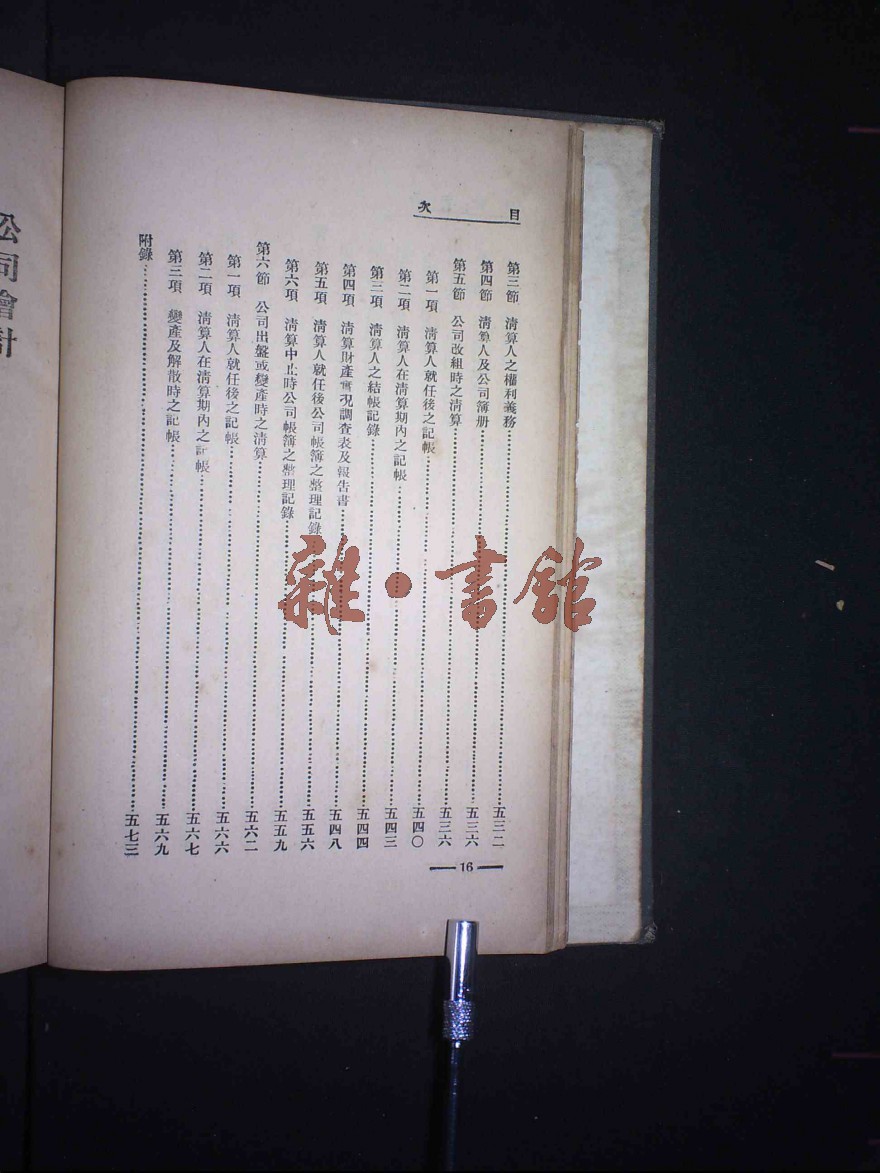 目次
第三節 清算人之權利義務……五三二
第四節 清算人及公司簿册……五三六
第五節 公司改組時之清算……五三六
第一項 清算人就任後之記帳……五四〇
第二項 清算人在清算期內之記帳……五四三
第三項 清算人之結帳記錄……五四四
第四項 清算財產實況調查表及報告書……五四八
第五項 清算人就任後公司帳簿之整理記錄……五五六
第六項 清算中止時公司帳簿之整理記錄……五五九
第六節 公司出盤或變產時之清算……五六二
第一項 清算人就任後之記帳……五六六
第二項 清算人在清算期內之記帳……五六七
第三項 變產及解散時之記帳……五六九
附錄……五七三
16
公司會計
雜·書館